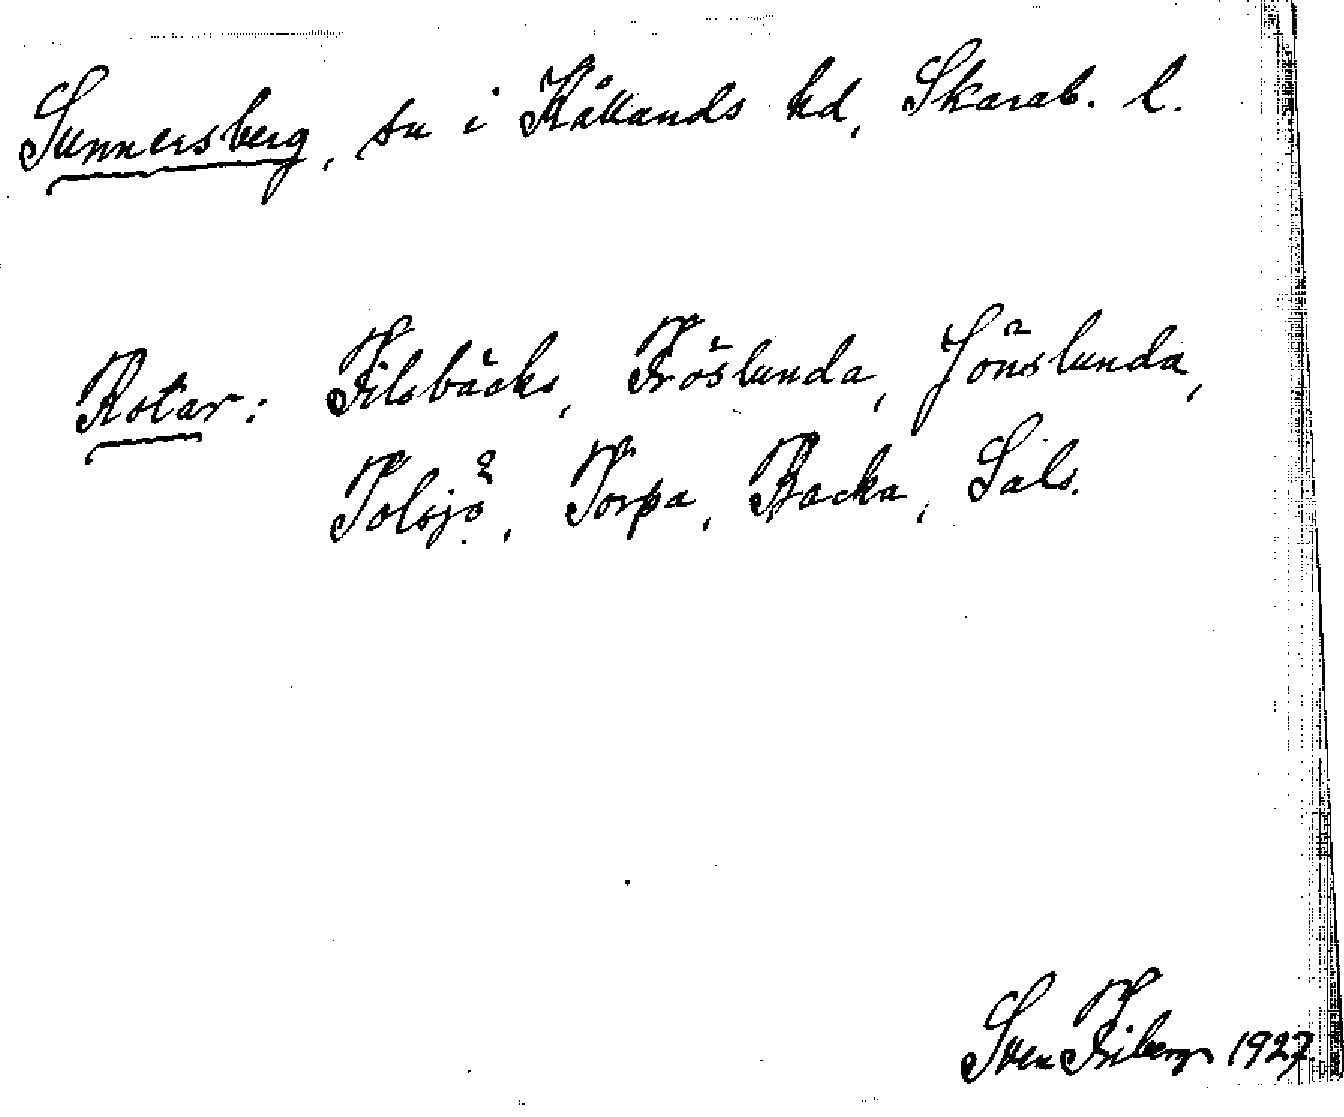 Sunnersberg, sn i Kållands hd, Skarab. l.
Rotar: Filsbäcks, Fröslunda, Jönslunda,
Tolsjö, Torpa, Backa, Sals.
Sven Friberg 1927.